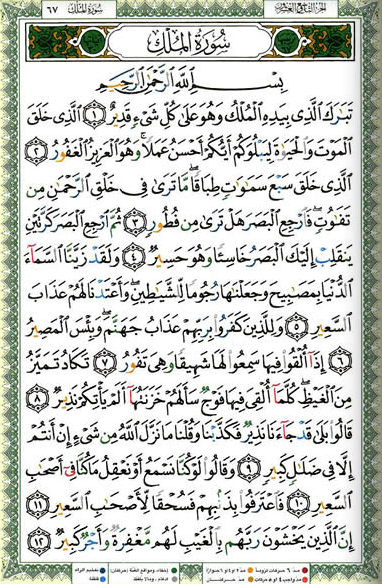 سُورَةُ المُلْكِ ٦٧
الجزء التاسع والعشرون
سُورَةُ المُلْكِ
بِسْمِ ٱللَّهِ ٱلرَّحْمَٰنِ ٱلرَّحِيمِ
تَبَٰرَكَ ٱلَّذِى بِيَدِهِ ٱلْمُلْكُ وَهُوَ عَلَىٰ كُلِّ شَىْءٍ قَدِيرٌ ١ ٱلَّذِى خَلَقَ
ٱلْمَوْتَ وَٱلْحَيَوٰةَ لِيَبْلُوَكُمْ أَيُّكُمْ أَحْسَنُ عَمَلًا ۚ وَهُوَ ٱلْعَزِيزُ ٱلْغَفُورُ ٢
ٱلَّذِى خَلَقَ سَبْعَ سَمَٰوَٰتٍ طِبَاقًا ۖ مَّا تَرَىٰ فِى خَلْقِ ٱلرَّحْمَٰنِ مِن
تَفَٰوُتٍ ۖ فَٱرْجِعِ ٱلْبَصَرَ هَلْ تَرَىٰ مِن فُطُورٍ ٣ ثُمَّ ٱرْجِعِ ٱلْبَصَرَ كَرَّتَيْنِ
يَنقَلِبْ إِلَيْكَ ٱلْبَصَرُ خَاسِئًا وَهُوَ حَسِيرٌ ٤ وَلَقَدْ زَيَّنَّا ٱلسَّمَآءَ
ٱلدُّنْيَا بِمَصَٰبِيحَ وَجَعَلْنَٰهَا رُجُومًا لِّلشَّيَٰطِينِ ۖ وَأَعْتَدْنَا لَهُمْ عَذَابَ
ٱلسَّعِيرِ ٥ وَلِلَّذِينَ كَفَرُوا۟ بِرَبِّهِمْ عَذَابُ جَهَنَّمَ ۖ وَبِئْسَ ٱلْمَصِيرُ
٦ إِذَآ أُلْقُوا۟ فِيهَا سَمِعُوا۟ لَهَا شَهِيقًا وَهِىَ تَفُورُ ٧ تَكَادُ تَمَيَّزُ
مِنَ ٱلْغَيْظِ ۖ كُلَّمَآ أُلْقِىَ فِيهَا فَوْجٌ سَأَلَهُمْ خَزَنَتُهَآ أَلَمْ يَأْتِكُمْ نَذِيرٌ ٨
قَالُوا۟ بَلَىٰ قَدْ جَآءَنَا نَذِيرٌ فَكَذَّبْنَا وَقُلْنَا مَا نَزَّلَ ٱللَّهُ مِن شَىْءٍ إِنْ أَنتُمْ
إِلَّا فِى ضَلَٰلٍ كَبِيرٍ ٩ وَقَالُوا۟ لَوْ كُنَّا نَسْمَعُ أَوْ نَعْقِلُ مَا كُنَّا فِىٓ أَصْحَٰبِ
ٱلسَّعِيرِ ١٠ فَٱعْتَرَفُوا۟ بِذَنۢبِهِمْ فَسُحْقًا لِّأَصْحَٰبِ ٱلسَّعِيرِ ١١
إِنَّ ٱلَّذِينَ يَخْشَوْنَ رَبَّهُم بِٱلْغَيْبِ لَهُم مَّغْفِرَةٌ وَأَجْرٌ كَبِيرٌ ١٢